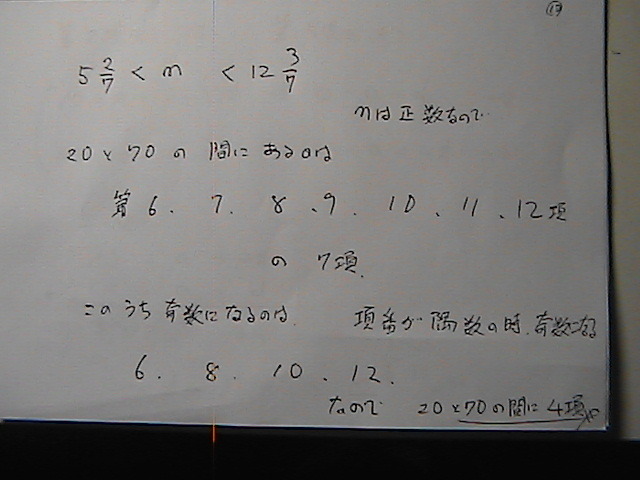 ⑰
5 2/7 < n < 12 3/7
nは正数なので
20と70の間にあるのは
第6、7、8、9、10、11、12項
の7項
このうち奇数になるのは、項番が偶数の時、奇数になる
6、8、10、12、
なので 20と70の間に4項